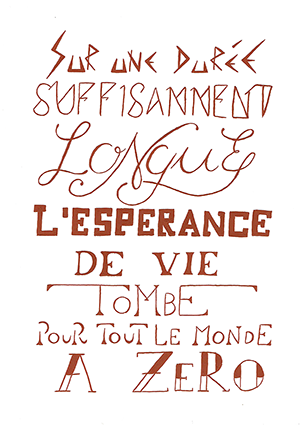 SUR UNE DURÉE
SUFFISAMMENT
LONGUE
L'ESPERANCE
DE VIE
TOMBE
POUR TOUT LE MONDE
A ZERO